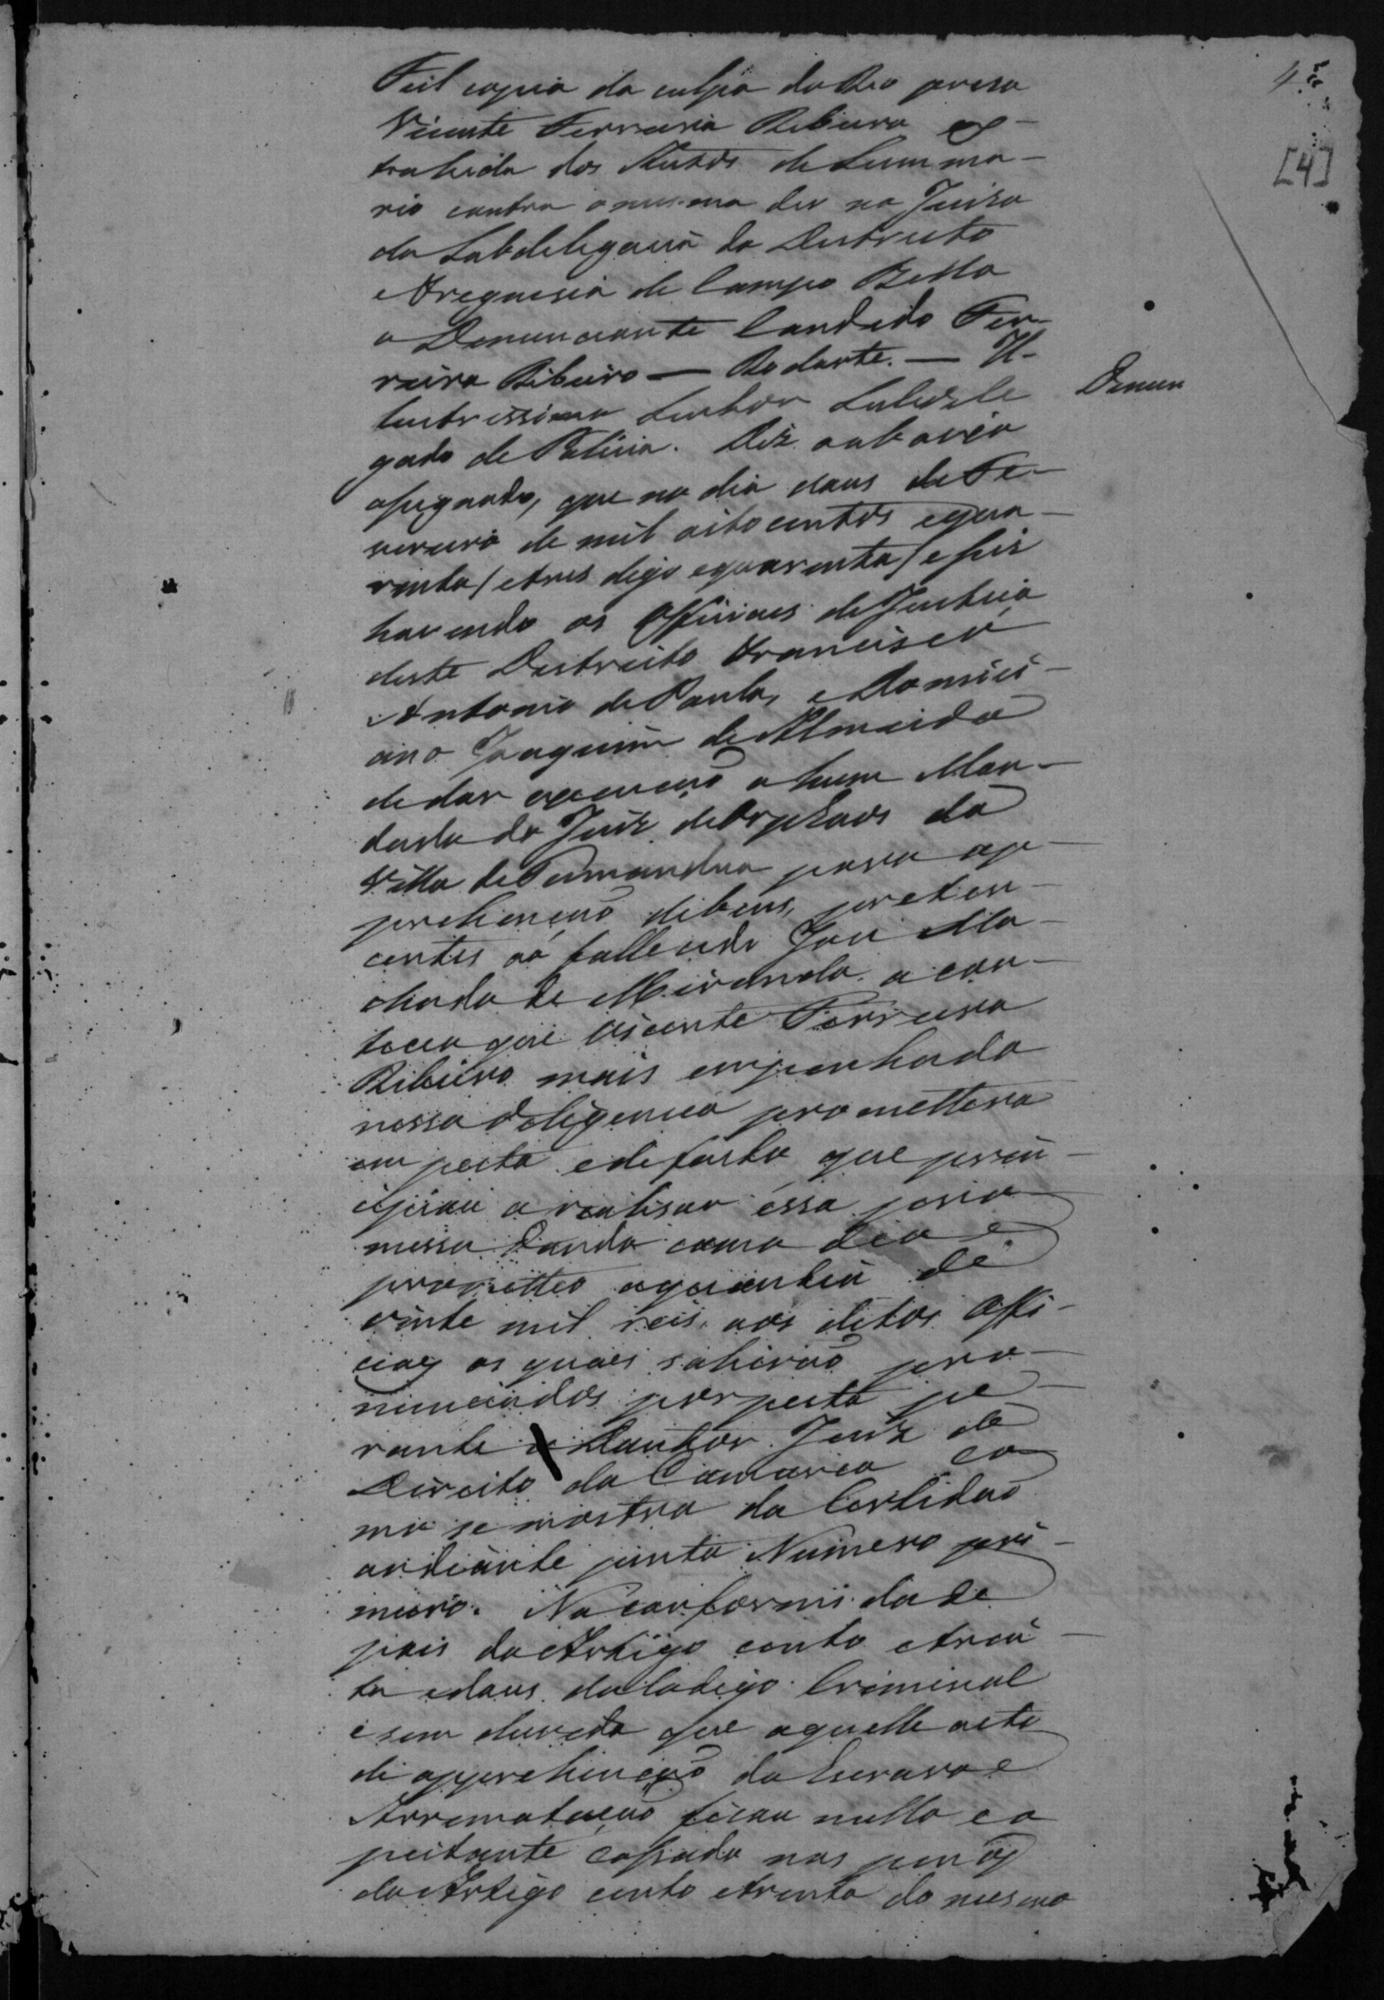 4
[4]
Fiel copia da culpa do Reo prezo
Vicente Ferreira Ribeiro ex-
trahida dos Autos de Summa-
rio contra o mesmo dev no Juizo
da Subdelegacia do Destricto
e Freguesia de Campo Bello
o Denunciante Candido Fer-
reira Ribeiro — Rodarte. — Il-
lustrissimo Senhor Subdele
Denun
gado de Policia. Diz o abaixo
assignado, que no dia dous de Fe-
vereiro de mil oito centos e qua-
renta / e tres digo e quarenta / e seis
havendo os Officiaes de Justiça
deste Destricto Francisco
Antonio de Paula, e Domici-
ano Joaquim de Almeida
de dar execução a hum Man-
dado do Juiz de Orphaos da
Villa de Tamandua para ap-
prehenção de bens, perten-
centes ao fallecido José Ma-
chado de Miranda. a con-
teceu que Vicente Ferreira
Ribeiro mais empenhado
nessa deligencia promettera
em peita e de facto que prin-
cipiou a realisar essa pro-
messa dando como deo e
prometteo a quantia de
vinte mil reis. aos ditos Offi-
ciaes os quaes sahirão pro-
nunciados por peita pe-
rante o Doutor Juiz de
Direito da Comarca co
mo se mostra da Certidão
ao diante junta Numero pri-
meiro. Na conformidade
pois do Artigo cento e trin-
ta e dous do Codigo Criminal
e sem duvida que aquelle acto
de apprehenção da Escrava e
Arrematação ficou nullo e o
peitante incurso nas penas
do Artigo cento e trinta do mesmo